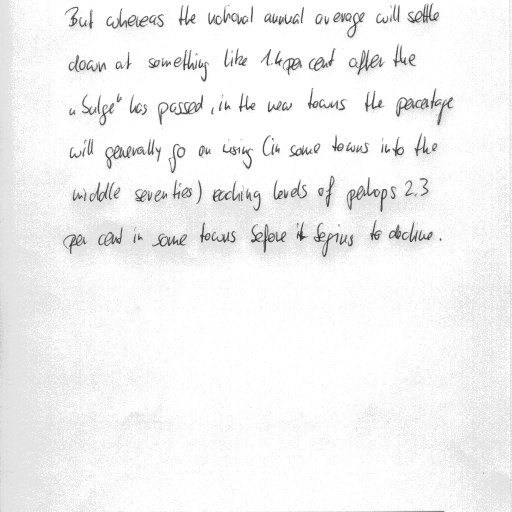 But whereas the national annual average will settle
down at something like 1.4 per cent after the
"bulge" has passed, in the new towns the percentage
will generally go on rising (in some towns into the
middle seventies) reaching levels of perhaps 2.3
per cent in some towns before it begins to decline.